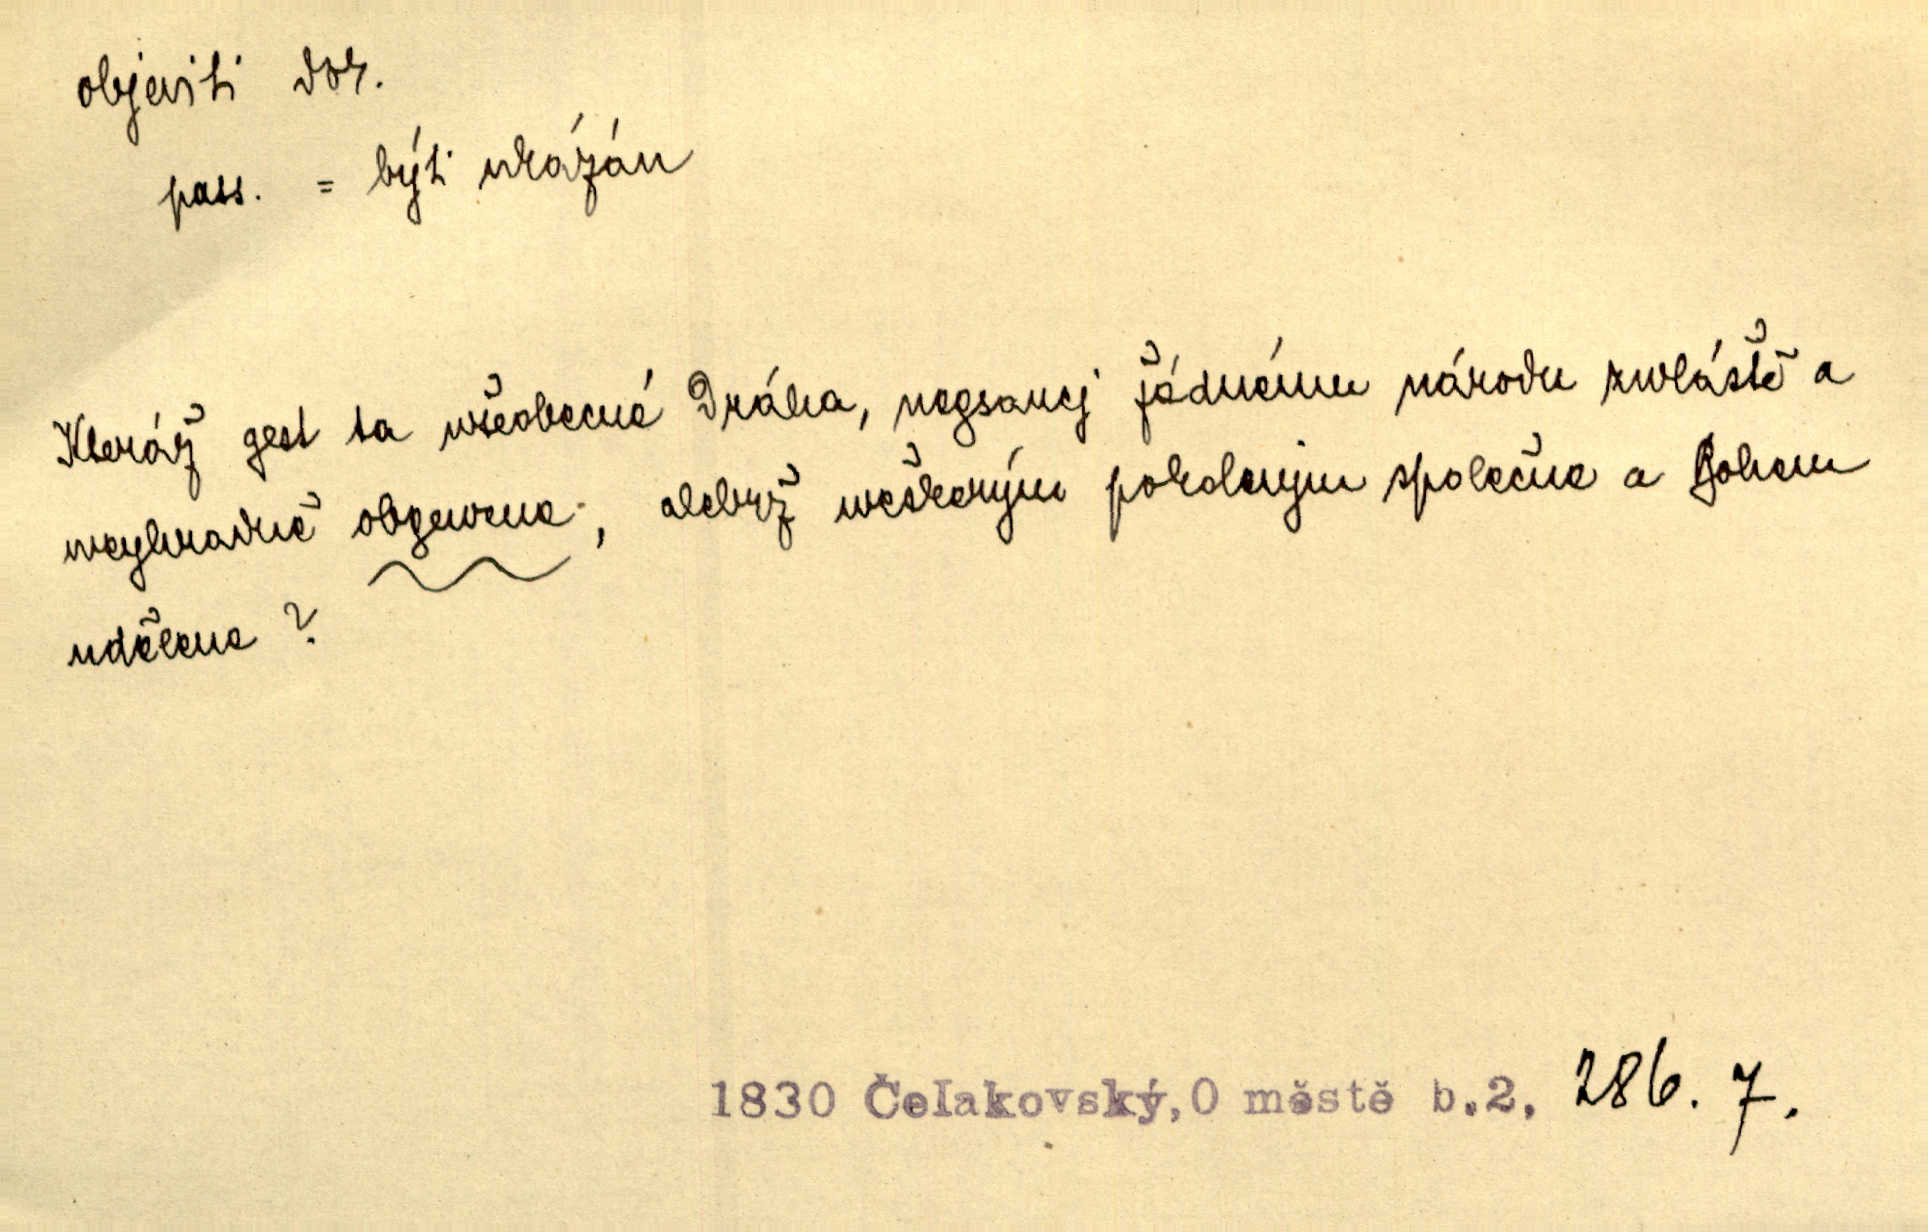 objeviti dok.
pass. = býti ukázán
Kteráž gest ta wšeobecná Dráha, negsaucj žádnému národu zwláště a
weyhradně obgewena, alebrž weškerým pokolenjm společna a Bohem
udělena?
1830 Čelakovský, O městě b.2, 286. 7.